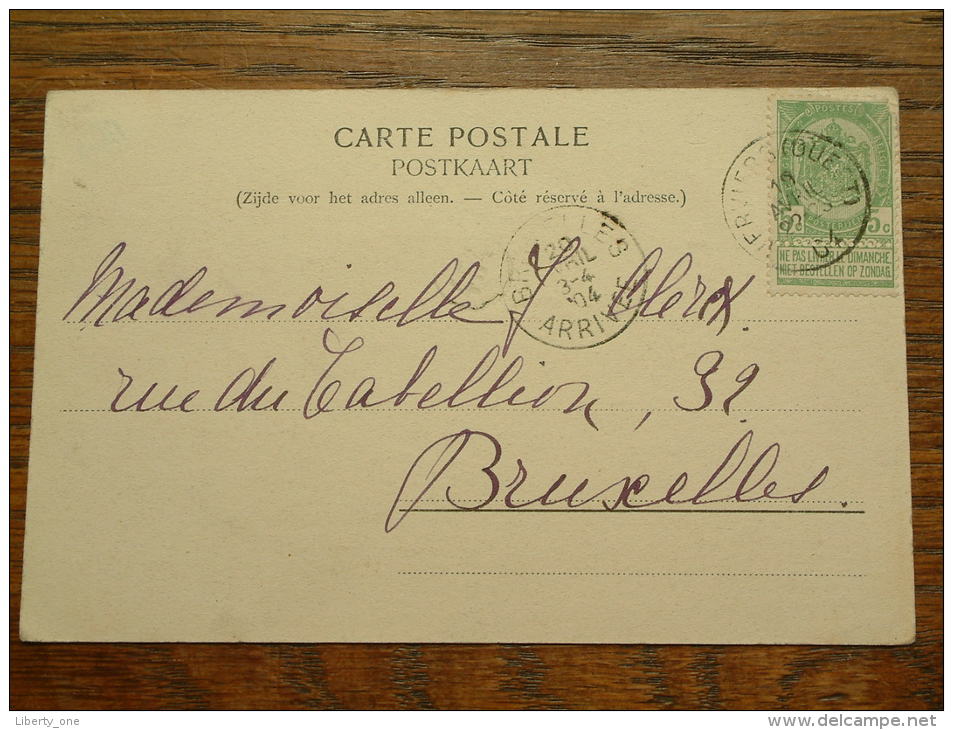 CARTE POSTALE
POSTKAART
(Zijde voor het adres alleen. — Côté réservé à l'adresse.)
POSTES
5c
NE PAS LIVRER LE DIMANCHE
NIET BESTELLEN OP ZONDAG
VERVIERS (OUEST)
04
BRUXELLES
3-4
'04
ARRIVEE
Mademoiselle J Clerx.
rue du Tabellion, 32
Bruxelles.
Liberty_one
delcampe.net